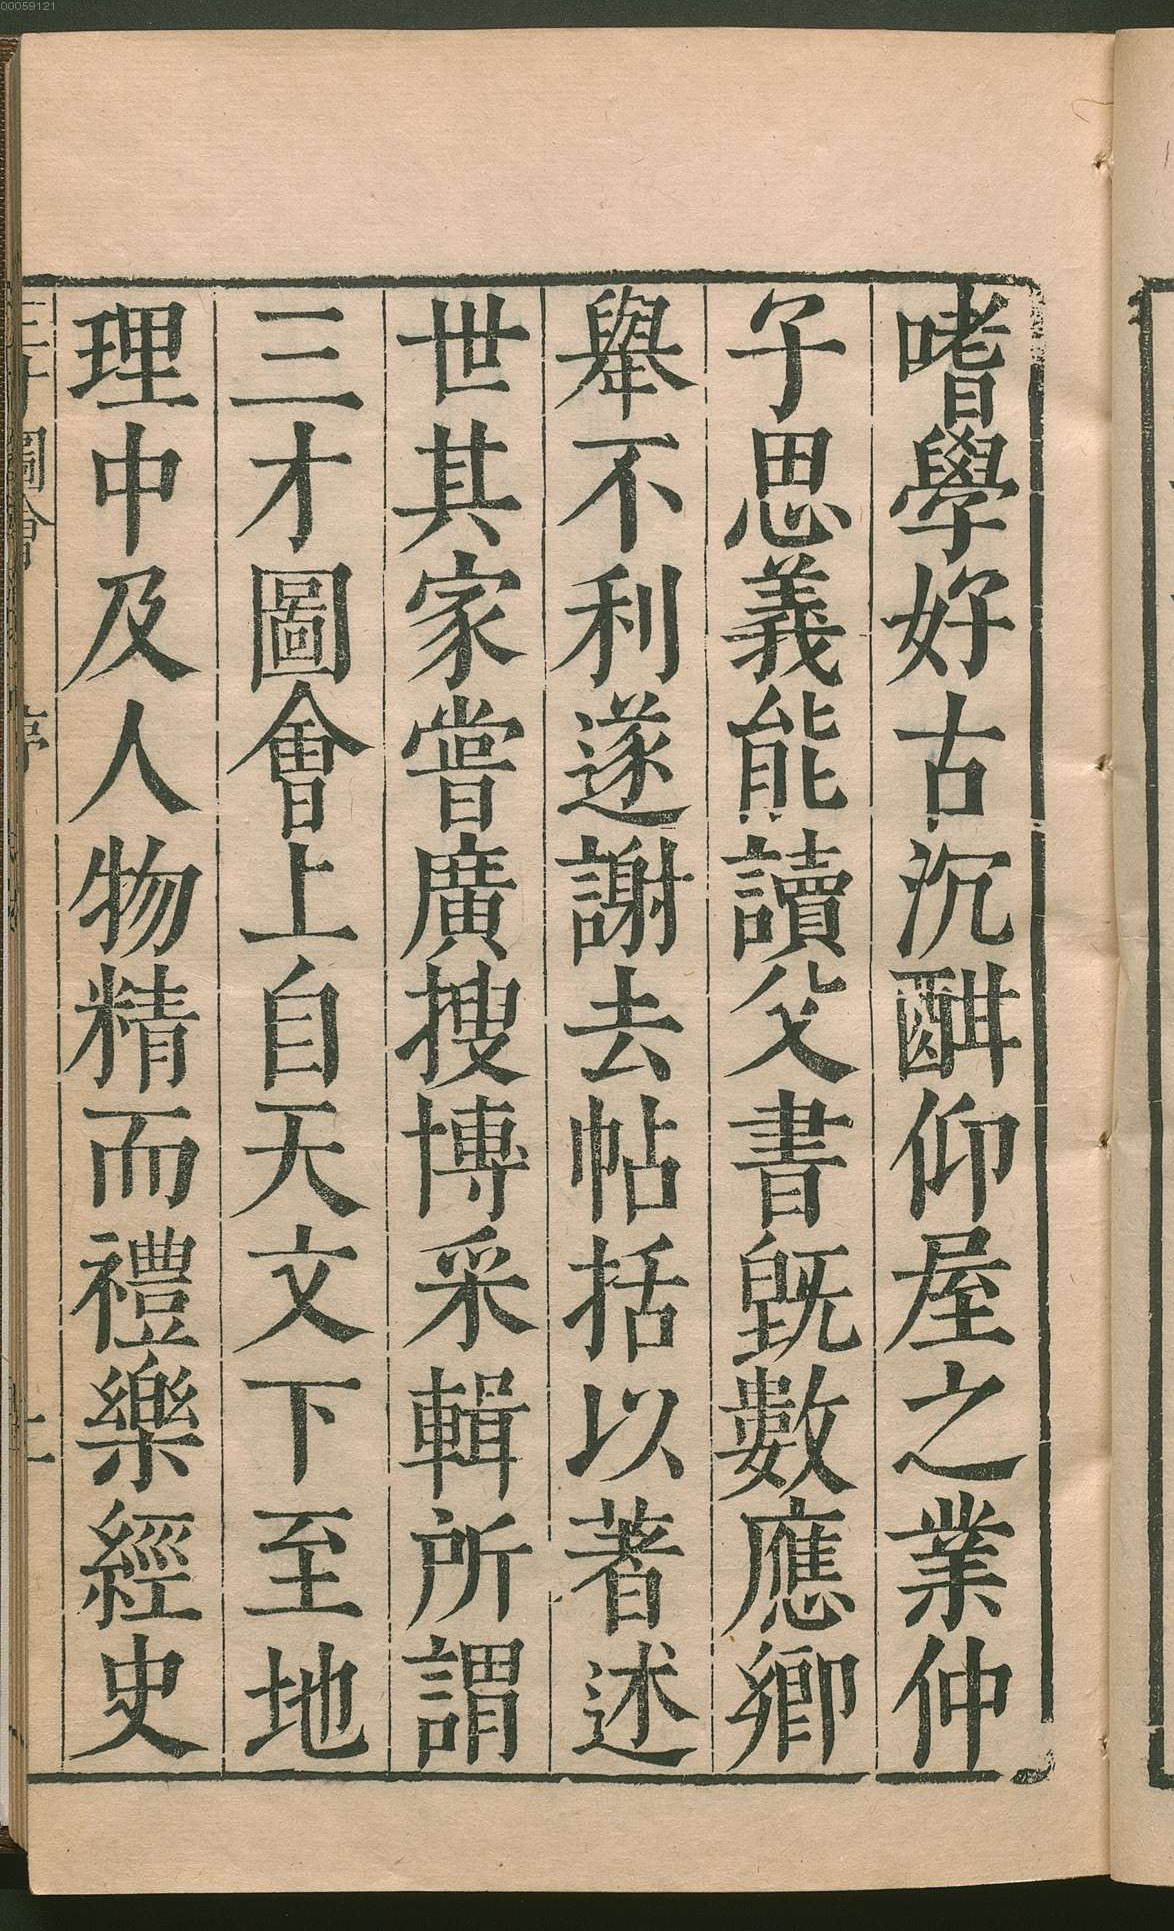 00059121
嗜學好古沉酣仰屋之業仲
子思義能讀父書旣數應鄉
舉不利遂謝去帖括以著述
世其家嘗廣搜博采輯所謂
三才圖會上自天文下至地
理中及人物精而禮樂經史
三才圖會 序 十一